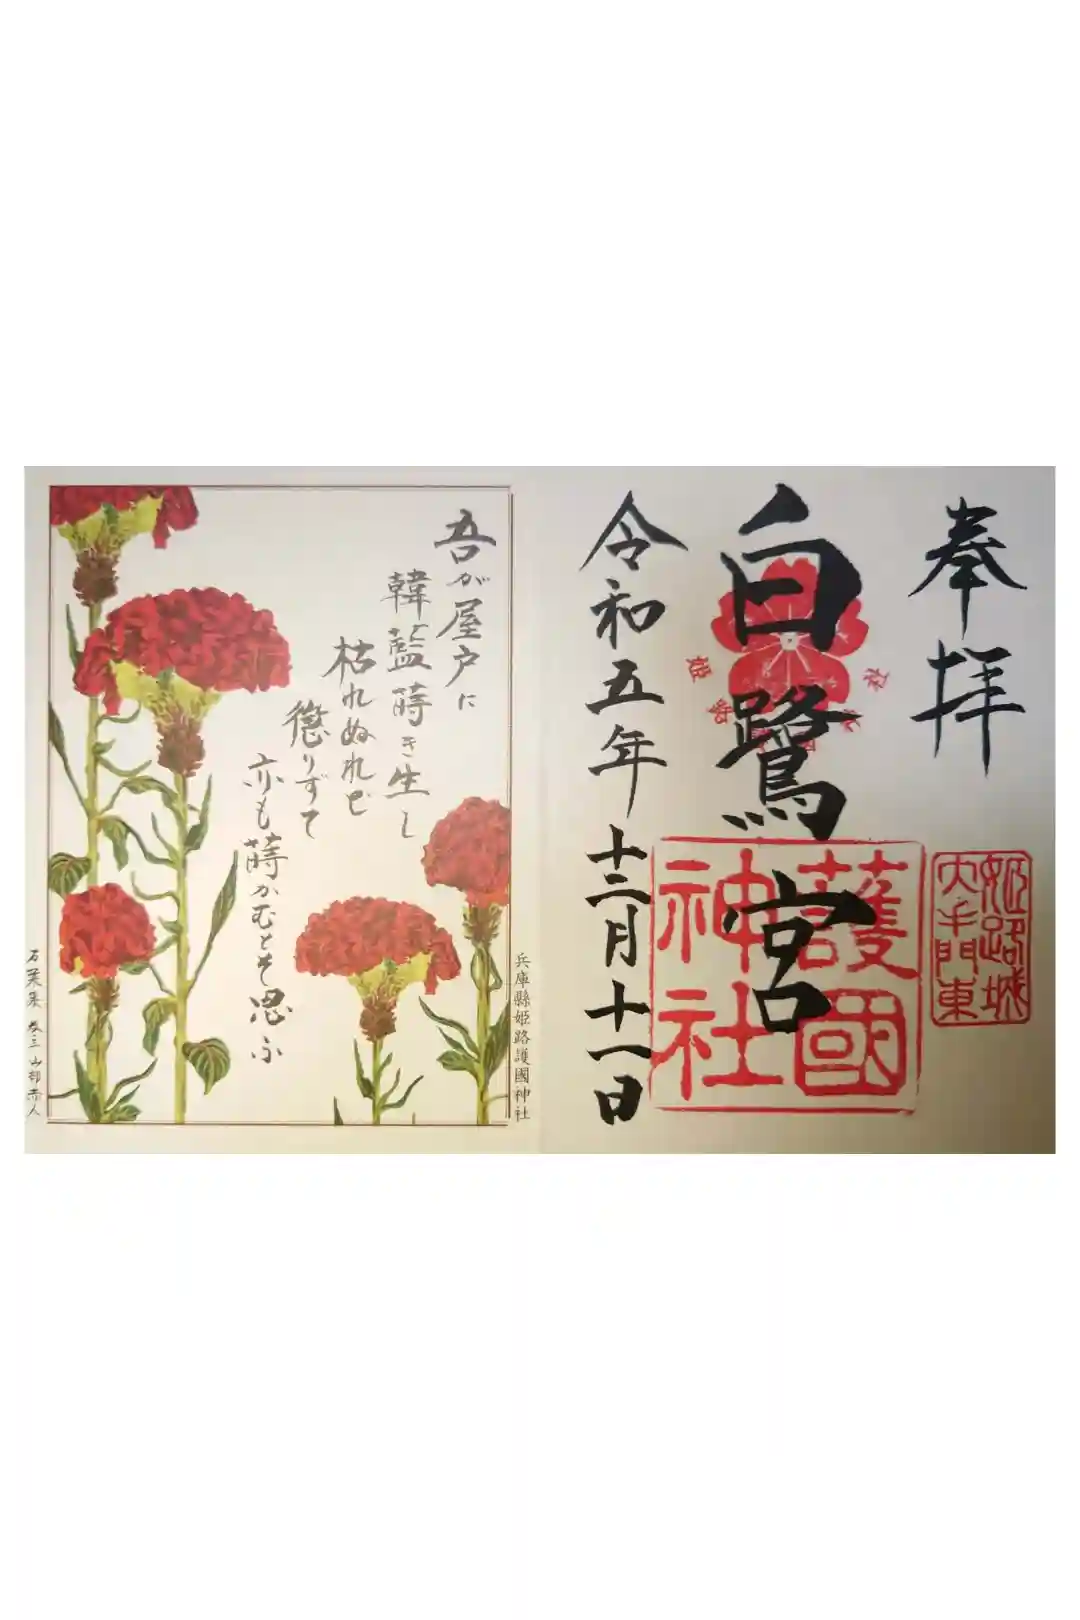 奉拝
姫路城
大手門東
白鷺宮
護國
神社
令和五年十二月十一日
兵庫縣姫路護國神社
吾が屋戸に
韓藍蒔き生し
枯れぬれど
懲りずて
亦も蒔かむとそ思ふ
万葉集 巻三 山部赤人